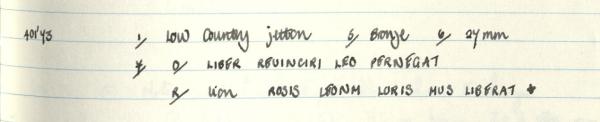 401'43 1/ Low Country jetton 5/ Bronze 6/ 27mm
7/ O/ LIBER REVINCIRI LEO PERNEGAT
R/ Lion ROSIS LEONM LORIS MUS LIBERAT